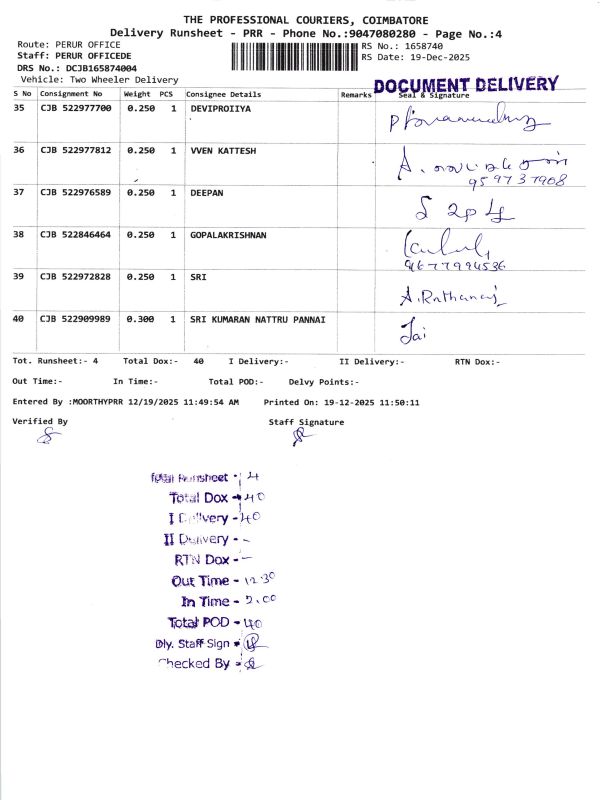 THE PROFESSIONAL COURIERS, COIMBATORE
Delivery Runsheet - PRR - Phone No.:9047080280 - Page No.:4
Route: PERUR OFFICE
RS No.: 1658740
Staff: PERUR OFFICEDE
RS Date: 19-Dec-2025
DRS No.: DCJB165874004
Vehicle: Two Wheeler Delivery
DOCUMENT DELIVERY
S No Consignment No Weight PCS Consignee Details Remarks Seal & Signature
35 CJB 522977700 0.250 1 DEVIPROIIYA
36 CJB 522977812 0.250 1 VVEN KATTESH A.
959737908
37 CJB 522976589 0.250 1 DEEPAN
38 CJB 522846464 0.250 1 GOPALAKRISHNAN
9677994536
39 CJB 522972828 0.250 1 SRI A. Rathanaj
40 CJB 522909989 0.300 1 SRI KUMARAN NATTRU PANNAI Jai
Tot. Runsheet:- 4 Total Dox:- 40 I Delivery:- II Delivery:- RTN Dox:-
Out Time:- In Time:- Total POD:- Delvy Points:-
Entered By :MOORTHYPRR 12/19/2025 11:49:54 AM Printed On: 19-12-2025 11:50:11
Verified By Staff Signature
Total Runsheet - 4
Total Dox - 40
I Delivery - 40
II Delivery - -
RTN Dox - -
Out Time - 12.30
In Time - 5.00
Total POD - 40
Dly. Staff Sign -
Checked By -